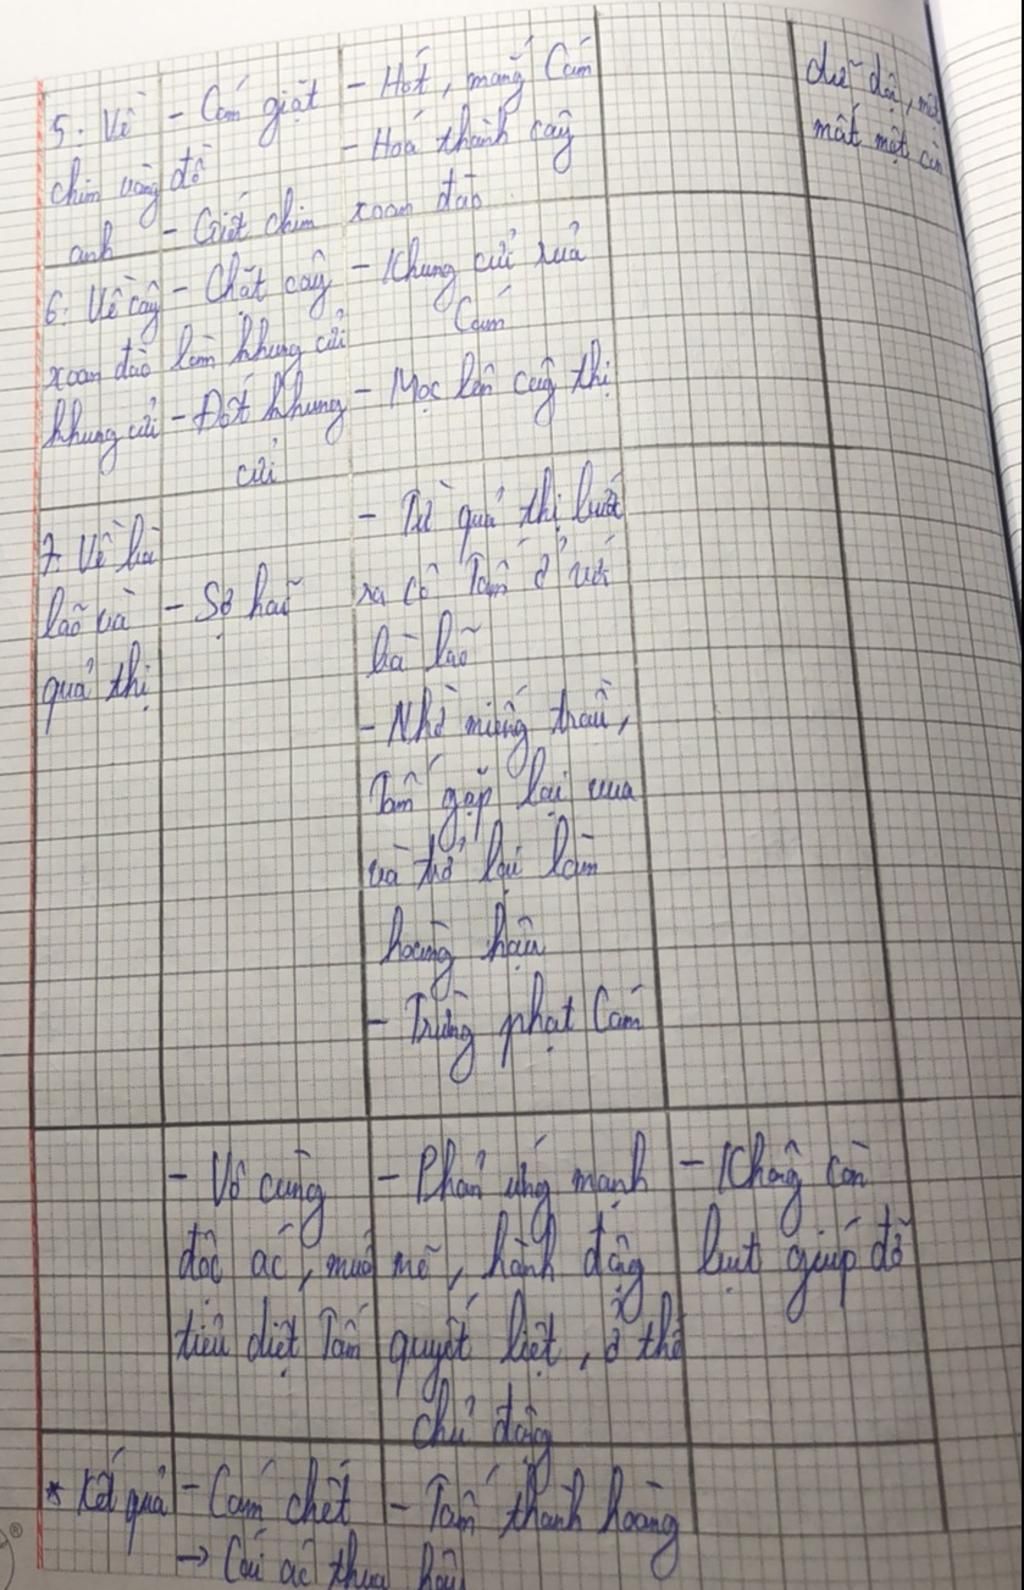 5. Về - Cám giặt - Hót, mắng Cám dữ dội, một
chim vàng đồ - Hoá thành cây mất một còn
anh - Giết chim xoan đào
6. Về cây - Chặt cây - Khung cửi rủa
xoan đào làm khung cửi Cám
khung cửi - Đốt khung - Mọc lên cây thị
cửi
7. Về bà - Từ quả thị bước
lão và - Sợ hãi ra cô Tấm ở với
quả thị bà lão
- Nhờ miếng trầu,
Tấm gặp lại vua
và trở lại làm
hoàng hậu
- Trừng phạt Cám
- Vô cùng - Phản ứng mạnh - Không còn
độc ác, muốn mẽ, hành động bụt giúp đỡ
tiêu diệt Tấm quyết liệt, ở thế
chủ động
* Kết quả - Cám chết - Tấm thành hoàng
→ Cái ác thua hậu